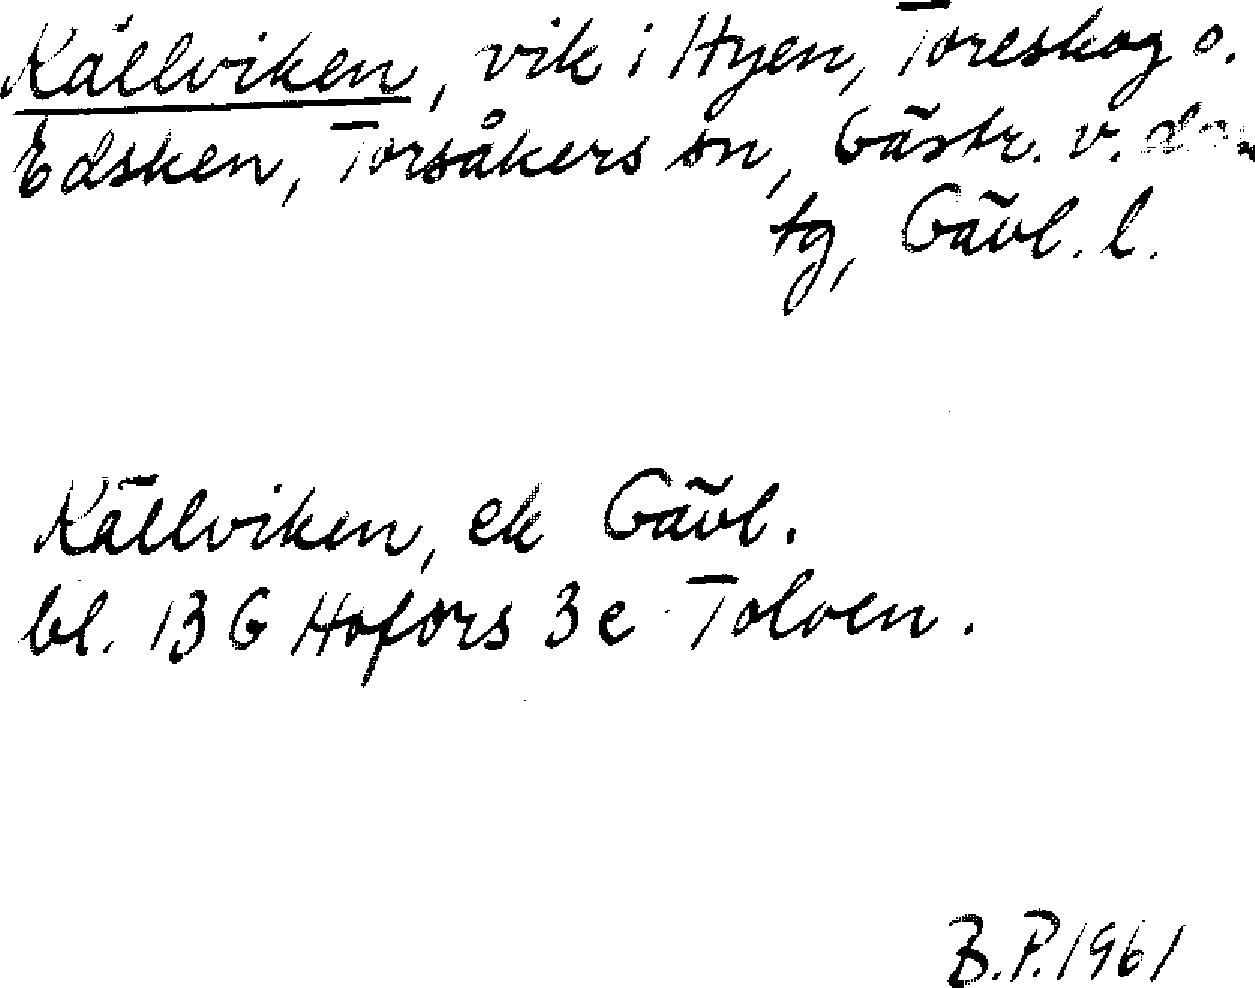 Källviken, vik i Hyen, Toreskog o.
Edsken, Torsåkers sn, Gästr. v. dms
tg, Gävl. l.
Källviken, ek Gävl.
bl. 13 G Hofors 3 e Tolven.
B.P. 1961